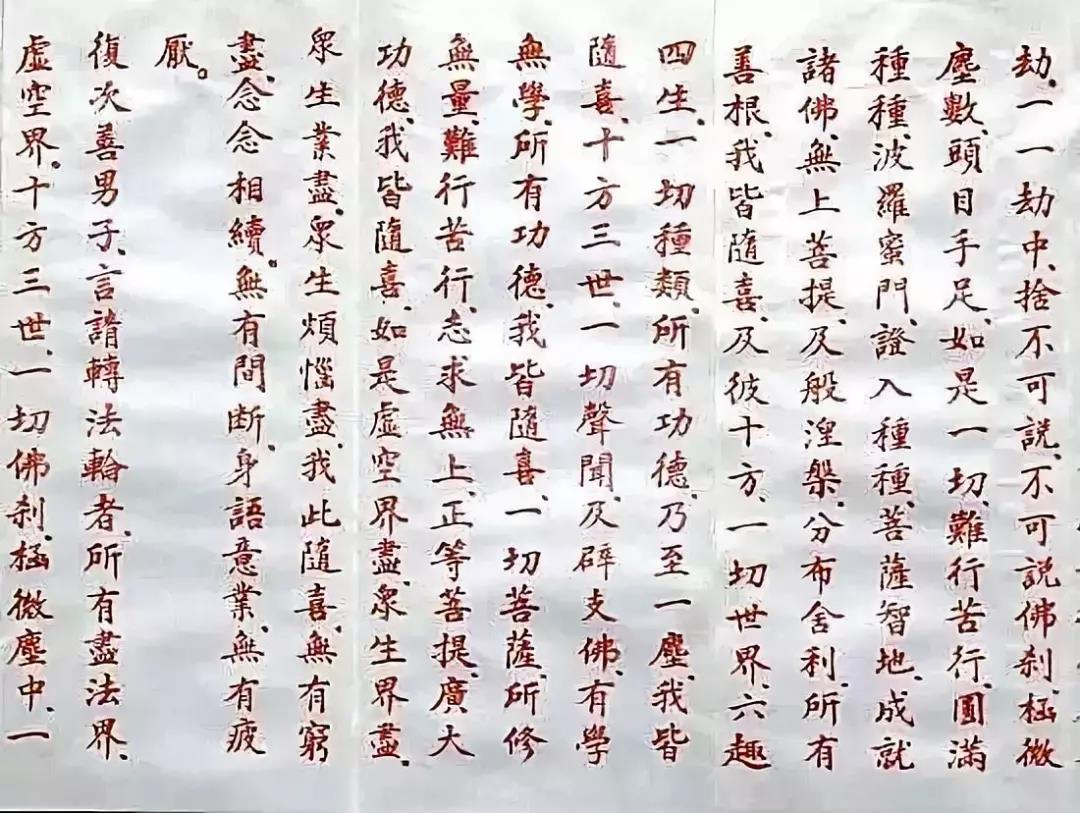 劫、一一劫中、捨不可說、不可說佛剎、極微
塵數、頭目手足、如是一切、難行苦行、圓滿
種種、波羅蜜門、證入種種、菩薩智地、成就
諸佛、無上菩提、及般涅槃、分布舍利、所有
善根、我皆隨喜、及彼十方、一切世界、六趣
四生、一切種類、所有功德、乃至一塵、我皆
隨喜、十方三世、一切聲聞、及辟支佛、有學
無學、所有功德、我皆隨喜、一切菩薩、所修
無量、難行苦行、志求無上、正等菩提、廣大
功德、我皆隨喜、如是虛空界盡、眾生界盡、
眾生業盡、眾生煩惱盡、我此隨喜、無有窮
盡、念念相續。無有間斷、身語意業、無有疲
厭。
復次善男子、言請轉法輪者、所有盡法界、
虛空界。十方三世、一切佛剎、極微塵中、一